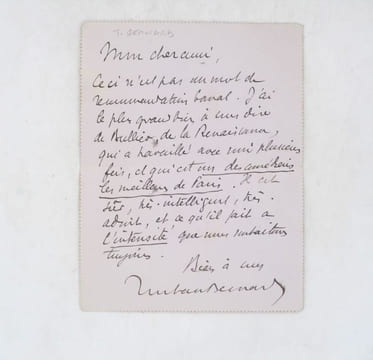 T. BERNARD
Mon cher ami,
Ceci n'est pas un mot de
recommandation banal. J'ai
le plus grand bien à vous dire
de Bullier, de la Renaissance,
qui a travaillé avec moi plusieurs
fois, et qui est un des comédiens
les meilleurs de Paris. Il est
sûr, très-intelligent, très-
adroit, et ce qu'il fait a
l'intensité que nous souhaitons
toujours.
Bien à vous
Tristan Bernard